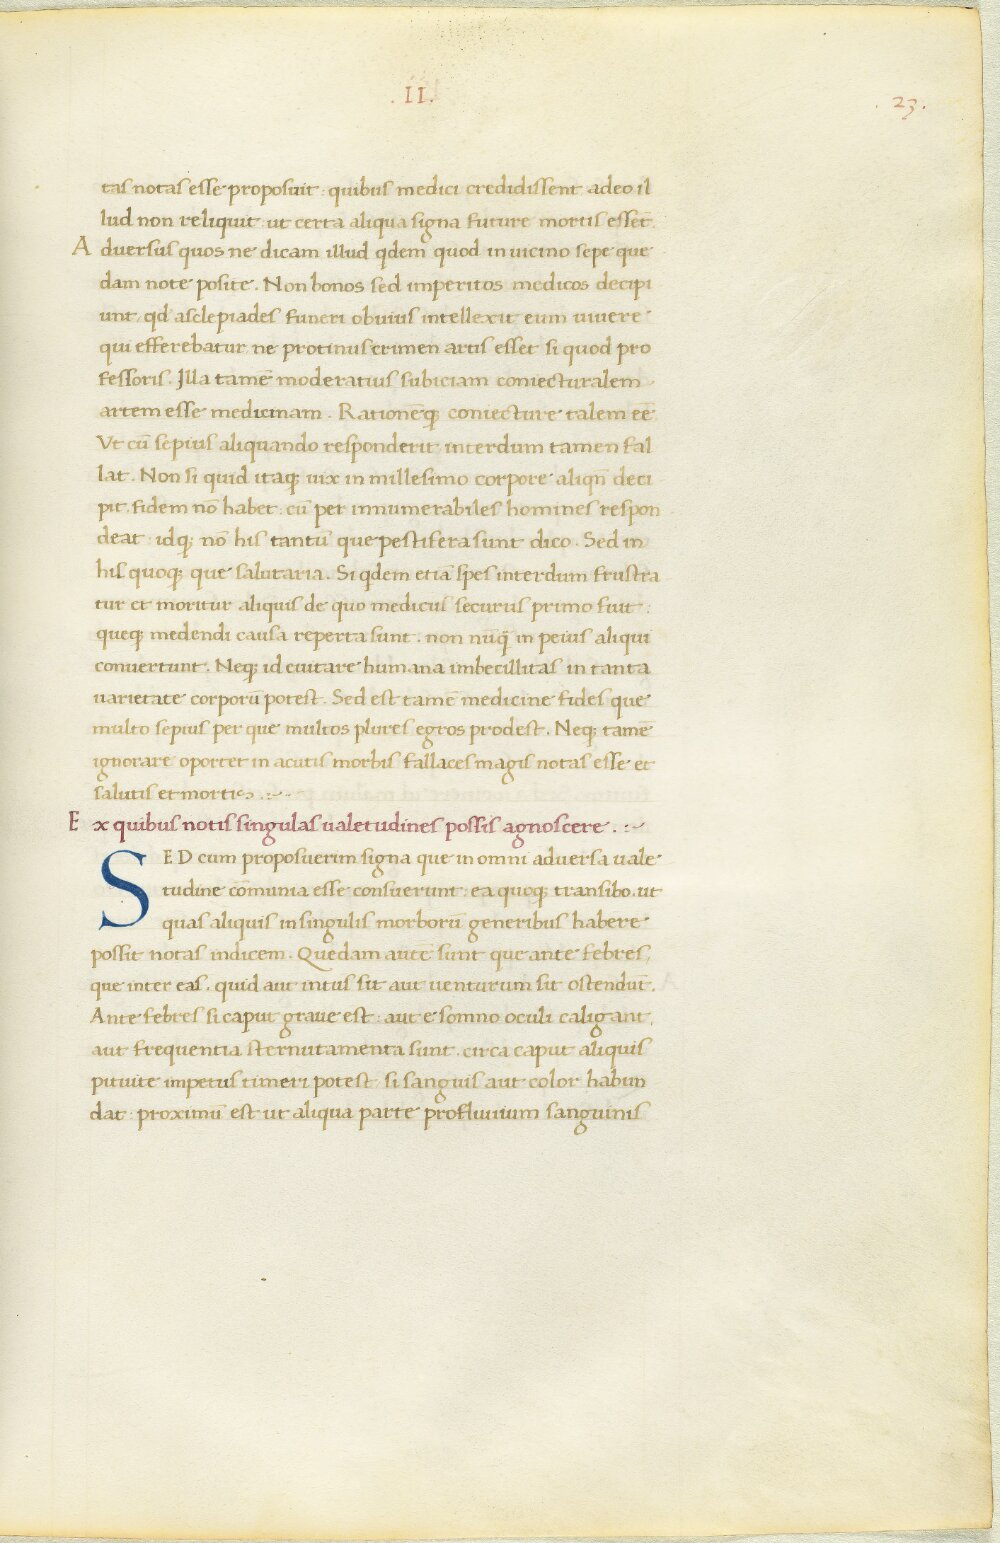 .II.
.23.
tas notas esse proposuit : quibus medici credidissent adeo il
lud non reliquit ut certa aliqua signa future mortis essēt.
Aduersus quos ne dicam illud qdem quod in uicino sepe que
dam note posite. Non bonos sed imperitos medicos decipi
unt, qđ asclepiades funeri obuius intellexit eum uiuere
qui efferebatur, ne protinus crimen artis esset si quod pro
fessoris. Illa tamē moderatius subiciam coniecturalem
artem esse medicinam. Rationēq; coniecture talem eē
Vt cū sepius aliquando responderit interdum tamen fal
lat. Non si quid itaq; uix in millesimo corpore aliqn̄ deci
pit, fidem nō habet : cū per innumerabiles homines respon
deat : idq; nō his tantū que pestifera sunt dico. Sed in
his quoq; que salutaria. Si qdem etiā spes interdum frustra
tur et moritur aliquis de quo medicus securus primo fuit :
queq; medendi causa reperta sunt, non nūq̄ in peius aliqui
conuertunt. Neq; id euitare humana imbecillitas in tanta
uarietate corporū potest. Sed est tamē medicine fides que
multo sepius per que multos plures egros prodest. Neq; tamē
ignorare oportet in acutis morbis fallaces magis notas esse et
salutis et mortis .:~
Ex quibus notis singulas ualetudines possis agnoscere . :~
SED cum proposuerim signa que in omni aduersa uale
tudine cōmunia esse consuerunt : ea quoq; transibo, ut
quas aliquis in singulis morborū generibus habere
possit notas indicem. Quedam autē sunt que ante febres,
que inter eas, quid aut intus sit aut uenturum sit ostendūt.
Ante febres si caput graue est : aut e somno oculi caligant,
aut frequentia sternutamenta sunt, circa caput aliquis
pituite impetus timeri potest, si sanguis aut color habun
dat : proximū est ut aliqua parte profluuium sanguinis